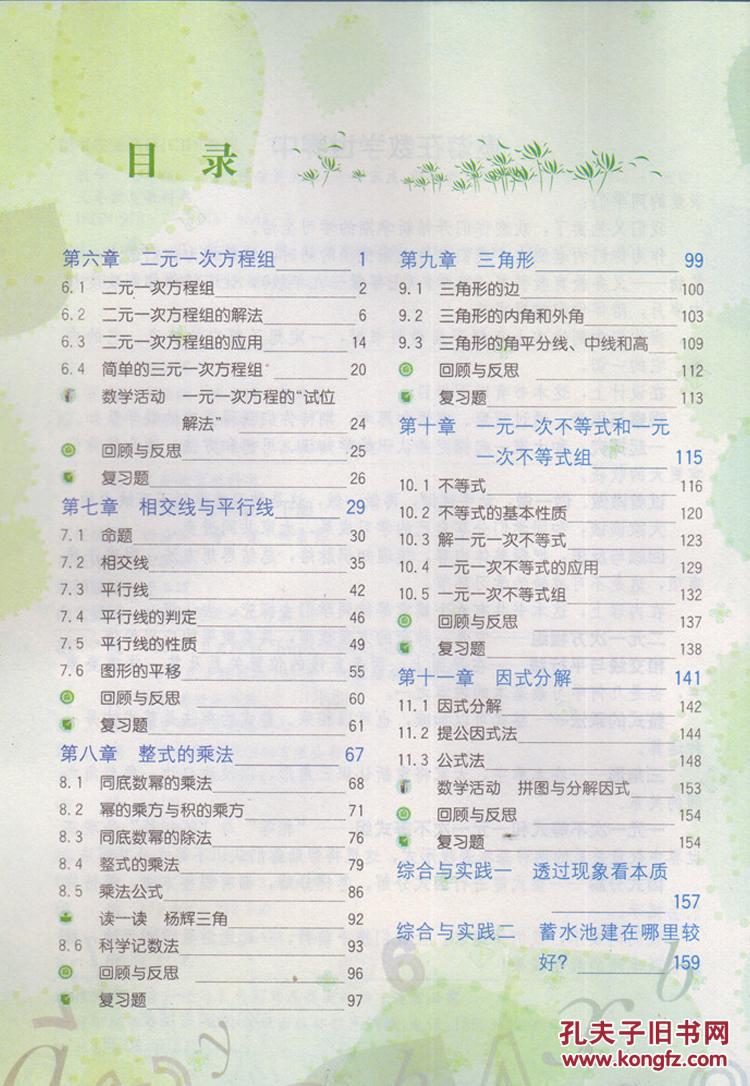 目 录
第六章 二元一次方程组 1
6.1 二元一次方程组 2
6.2 二元一次方程组的解法 6
6.3 二元一次方程组的应用 14
6.4 简单的三元一次方程组 20
数学活动 一元一次方程的“试位
解法” 24
回顾与反思 25
复习题 26
第七章 相交线与平行线 29
7.1 命题 30
7.2 相交线 35
7.3 平行线 42
7.4 平行线的判定 46
7.5 平行线的性质 49
7.6 图形的平移 55
回顾与反思 60
复习题 61
第八章 整式的乘法 67
8.1 同底数幂的乘法 68
8.2 幂的乘方与积的乘方 71
8.3 同底数幂的除法 76
8.4 整式的乘法 79
8.5 乘法公式 86
读一读 杨辉三角 92
8.6 科学记数法 93
回顾与反思 96
复习题 97
第九章 三角形 99
9.1 三角形的边 100
9.2 三角形的内角和外角 103
9.3 三角形的角平分线、中线和高 109
回顾与反思 112
复习题 113
第十章 一元一次不等式和一元
一次不等式组 115
10.1 不等式 116
10.2 不等式的基本性质 120
10.3 解一元一次不等式 123
10.4 一元一次不等式的应用 129
10.5 一元一次不等式组 132
回顾与反思 137
复习题 138
第十一章 因式分解 141
11.1 因式分解 142
11.2 提公因式法 144
11.3 公式法 148
数学活动 拼图与分解因式 153
回顾与反思 154
复习题 154
综合与实践一 透过现象看本质
157
综合与实践二 蓄水池建在哪里较
好? 159
孔夫子旧书网
www.kongfz.com